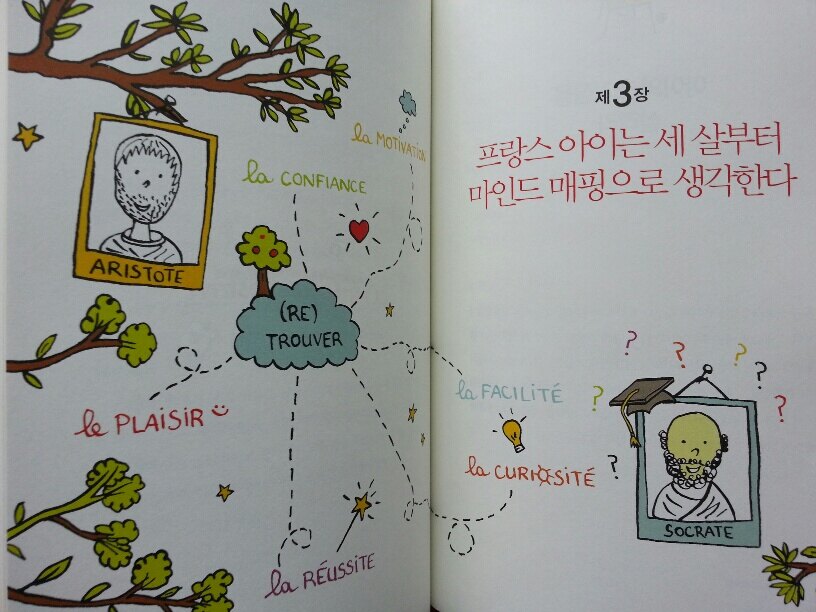 la MOTIVATION
la CONFIANCE
ARISTOTE
(RE)
TROUVER
le PLAISIR
la RÉUSSITE
제3장
프랑스 아이는 세 살부터
마인드 매핑으로 생각한다
la FACILITÉ
la CURIOSITÉ
? ? ? ? ? ? ?
SOCRATE